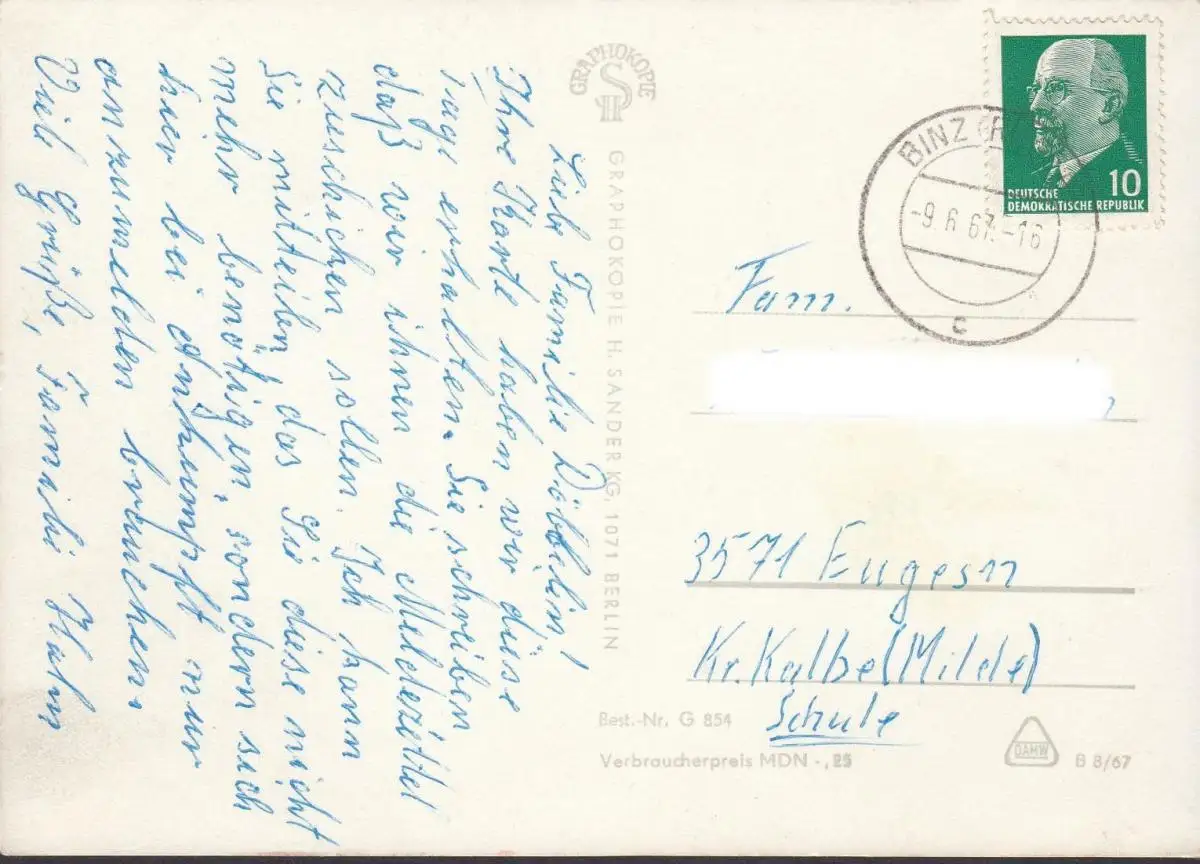 Liebe Familie Döbbelin!
Ihre Karte haben wir diese
Tage erhalten. Sie schreiben
daß wir ihnen die Meldezettel
zuschicken sollen. Ich kann
Sie mitteilen das Sie diese nicht
mehr benötigen, sondern sich
hier bei Ankumpft nur
anzumelden brauchen.
Viele Grüße, Familie Hahn
GRAPHOKOPIE
GRAPHOKOPIE H. SANDER KG, 1071 BERLIN
10
DEUTSCHE
DEMOKRATISCHE REPUBLIK
BINZ
-9.6.67.-16
c
Fam.
3571 Eugesn
Kr. Kalbe (Milde)
Schule
Best.-Nr. G 854
Verbraucherpreis MDN -,25
DAMW
B 8/67